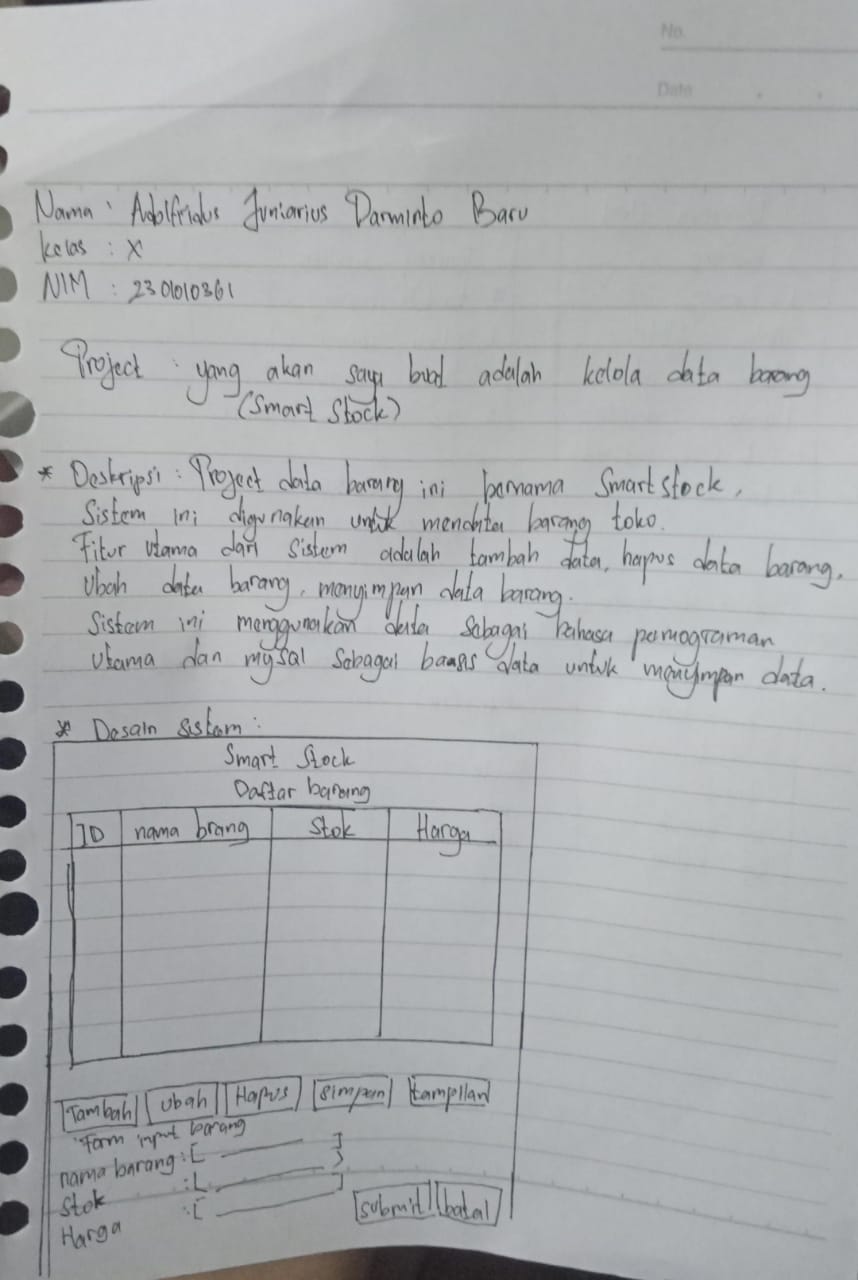 No.
Date
Nama : Adolfridus Juniarius Darminto Baru
kelas : X
NIM : 2301010361
Project : yang akan saya buat adalah kelola data barang
(Smart Stock)
* Deskripsi : Project data barang ini bernama Smartstock,
Sistem ini digunakan untuk mendata barang toko.
Fitur utama dari sistem adalah tambah data, hapus data barang,
Ubah data barang, menyimpan data barang.
Sistem ini menggunakan sebagai bahasa pemograman
Utama dan mysql sebagai data untuk menyimpan data.
* Desain sistem :
Smart Stock
Daftar barang
ID nama brang Stok Harga
Tambah Ubah Hapus Simpan tampilan
Form input barang
nama barang : [ ]
Stok : [ ]
Harga : [ ]
submit batal